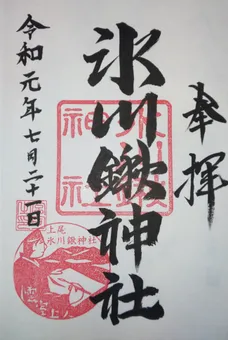 奉拝
氷川鍬神社
令和元年七月二十一日
氷川鍬神社
上尾
氷川鍬神社
雲室上人